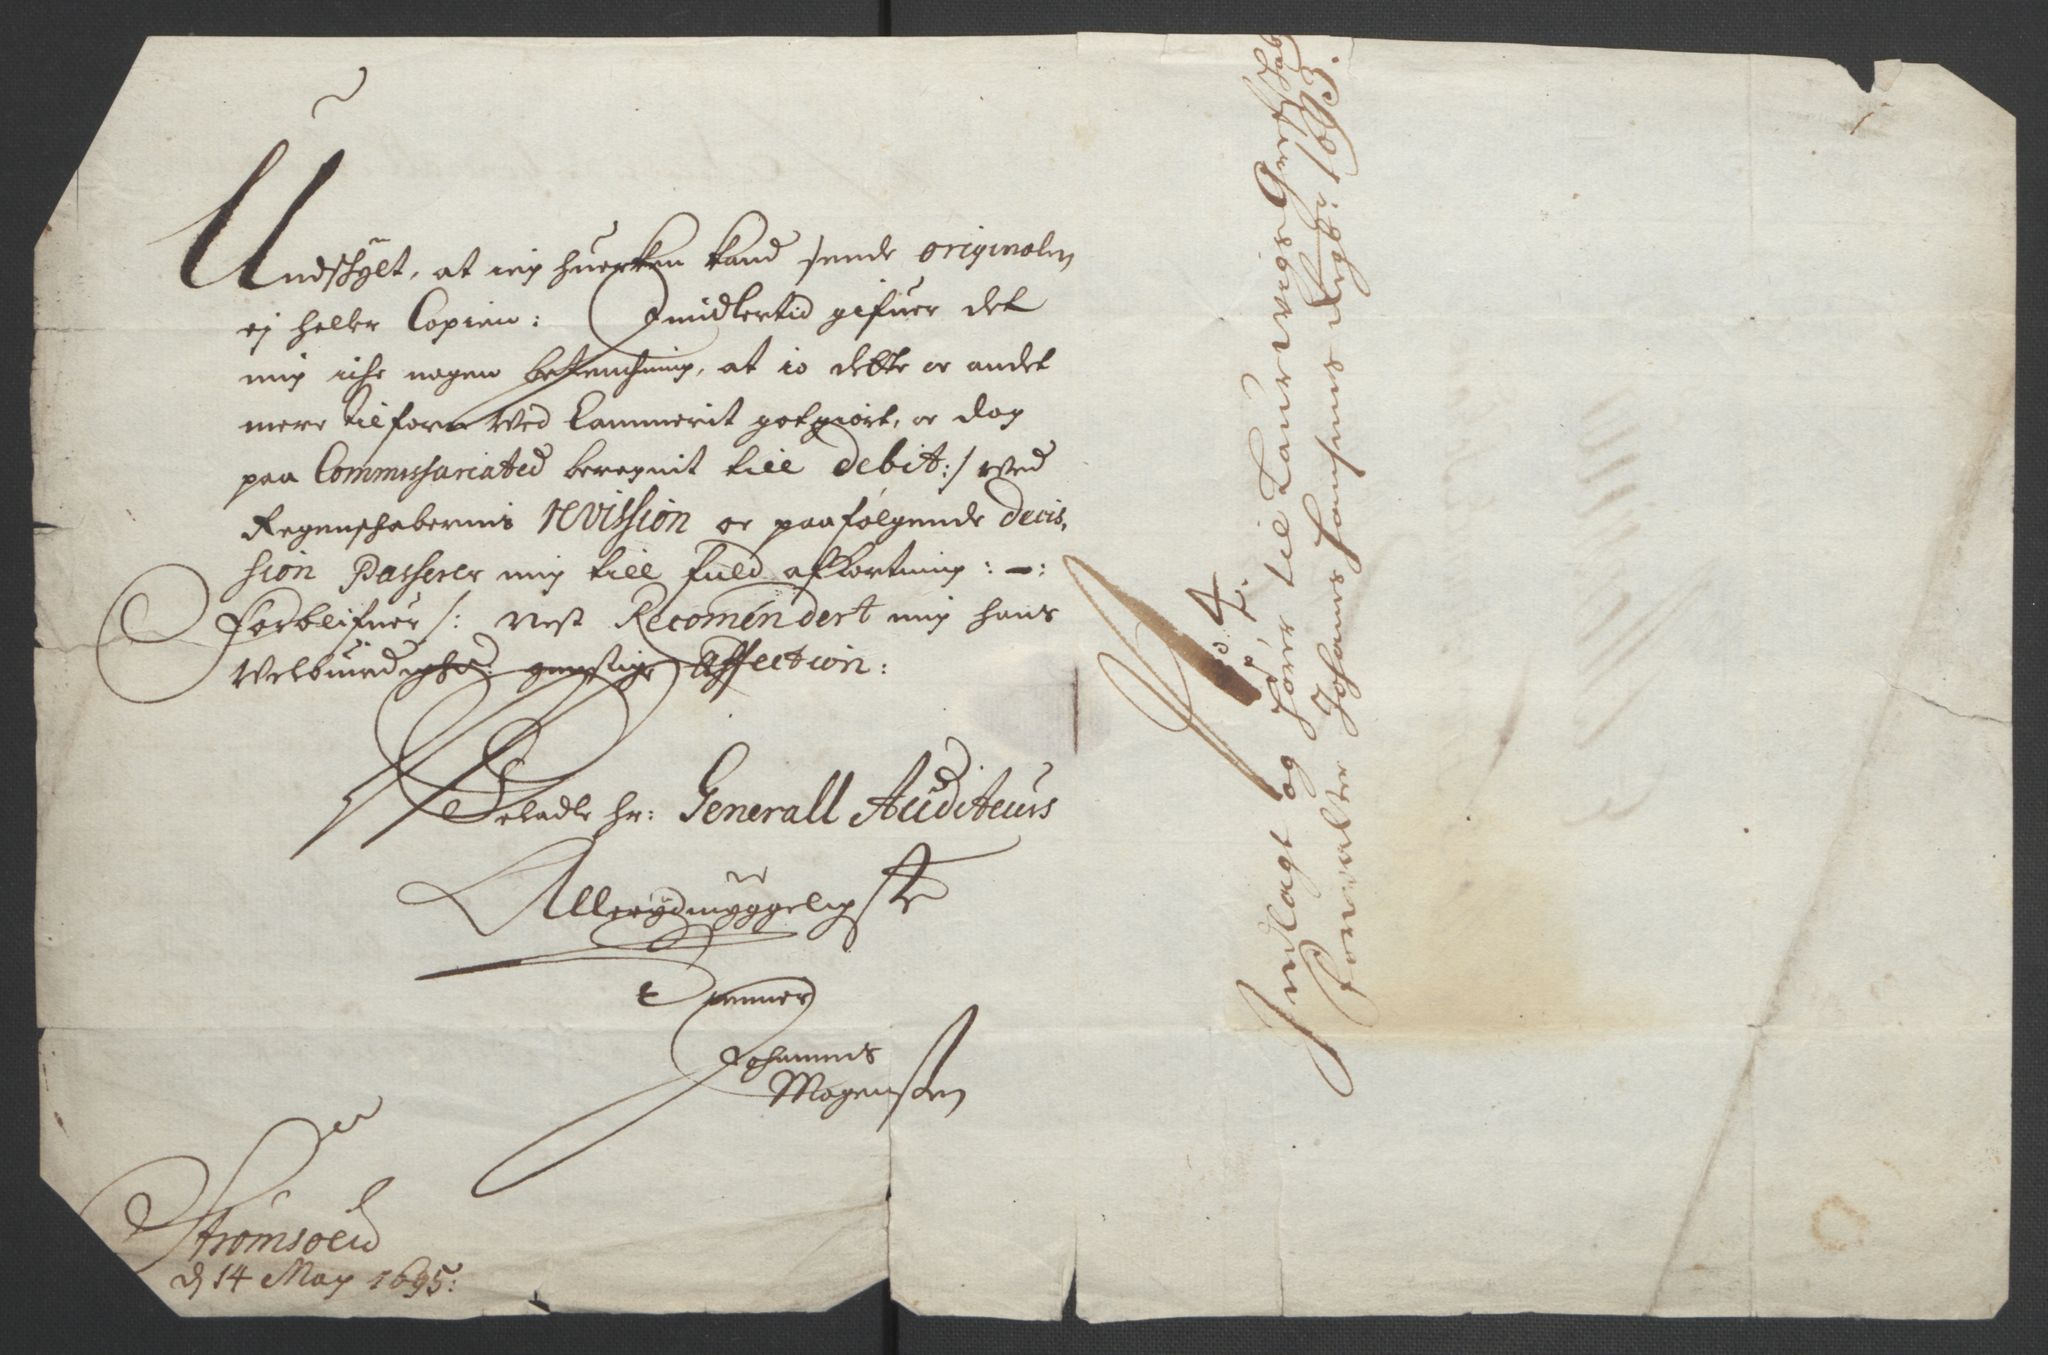 Undschylt, at ieg huerken kand sende originalen
ej heller Copien: Imidlertid gifuer det
mig iche nogen betenchning, at io dette oc andet
mere tilforn ved Cammerit gotgiort, oc dog
paa Commissariated beregnit till debit:/ ved
Regenschabernis revission oc paafølgende decis,
sion Passerer mig till fuld afkortning: -:
Forblifuer /: nest Recomendert mig hans
Velbiurdighed gunstige Affection:
Veladle hr: Generall Auditeurs
Allerydmyggeligste
tienner
Johannis
Mogensen
Strømsøed
d 14 May 1695:
No 4.
Indlagt og hører til Laurvigs Grefschabs
Forvalter Johannes Hansens Regb: 1693.